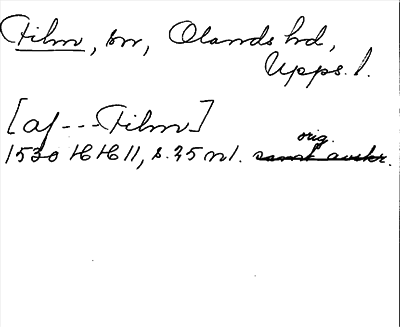 Film, sn, Olands hd,
Upps. l.
[af --- Film]
orig.
1530 HH 11, s. 35 nl. samt avskr.